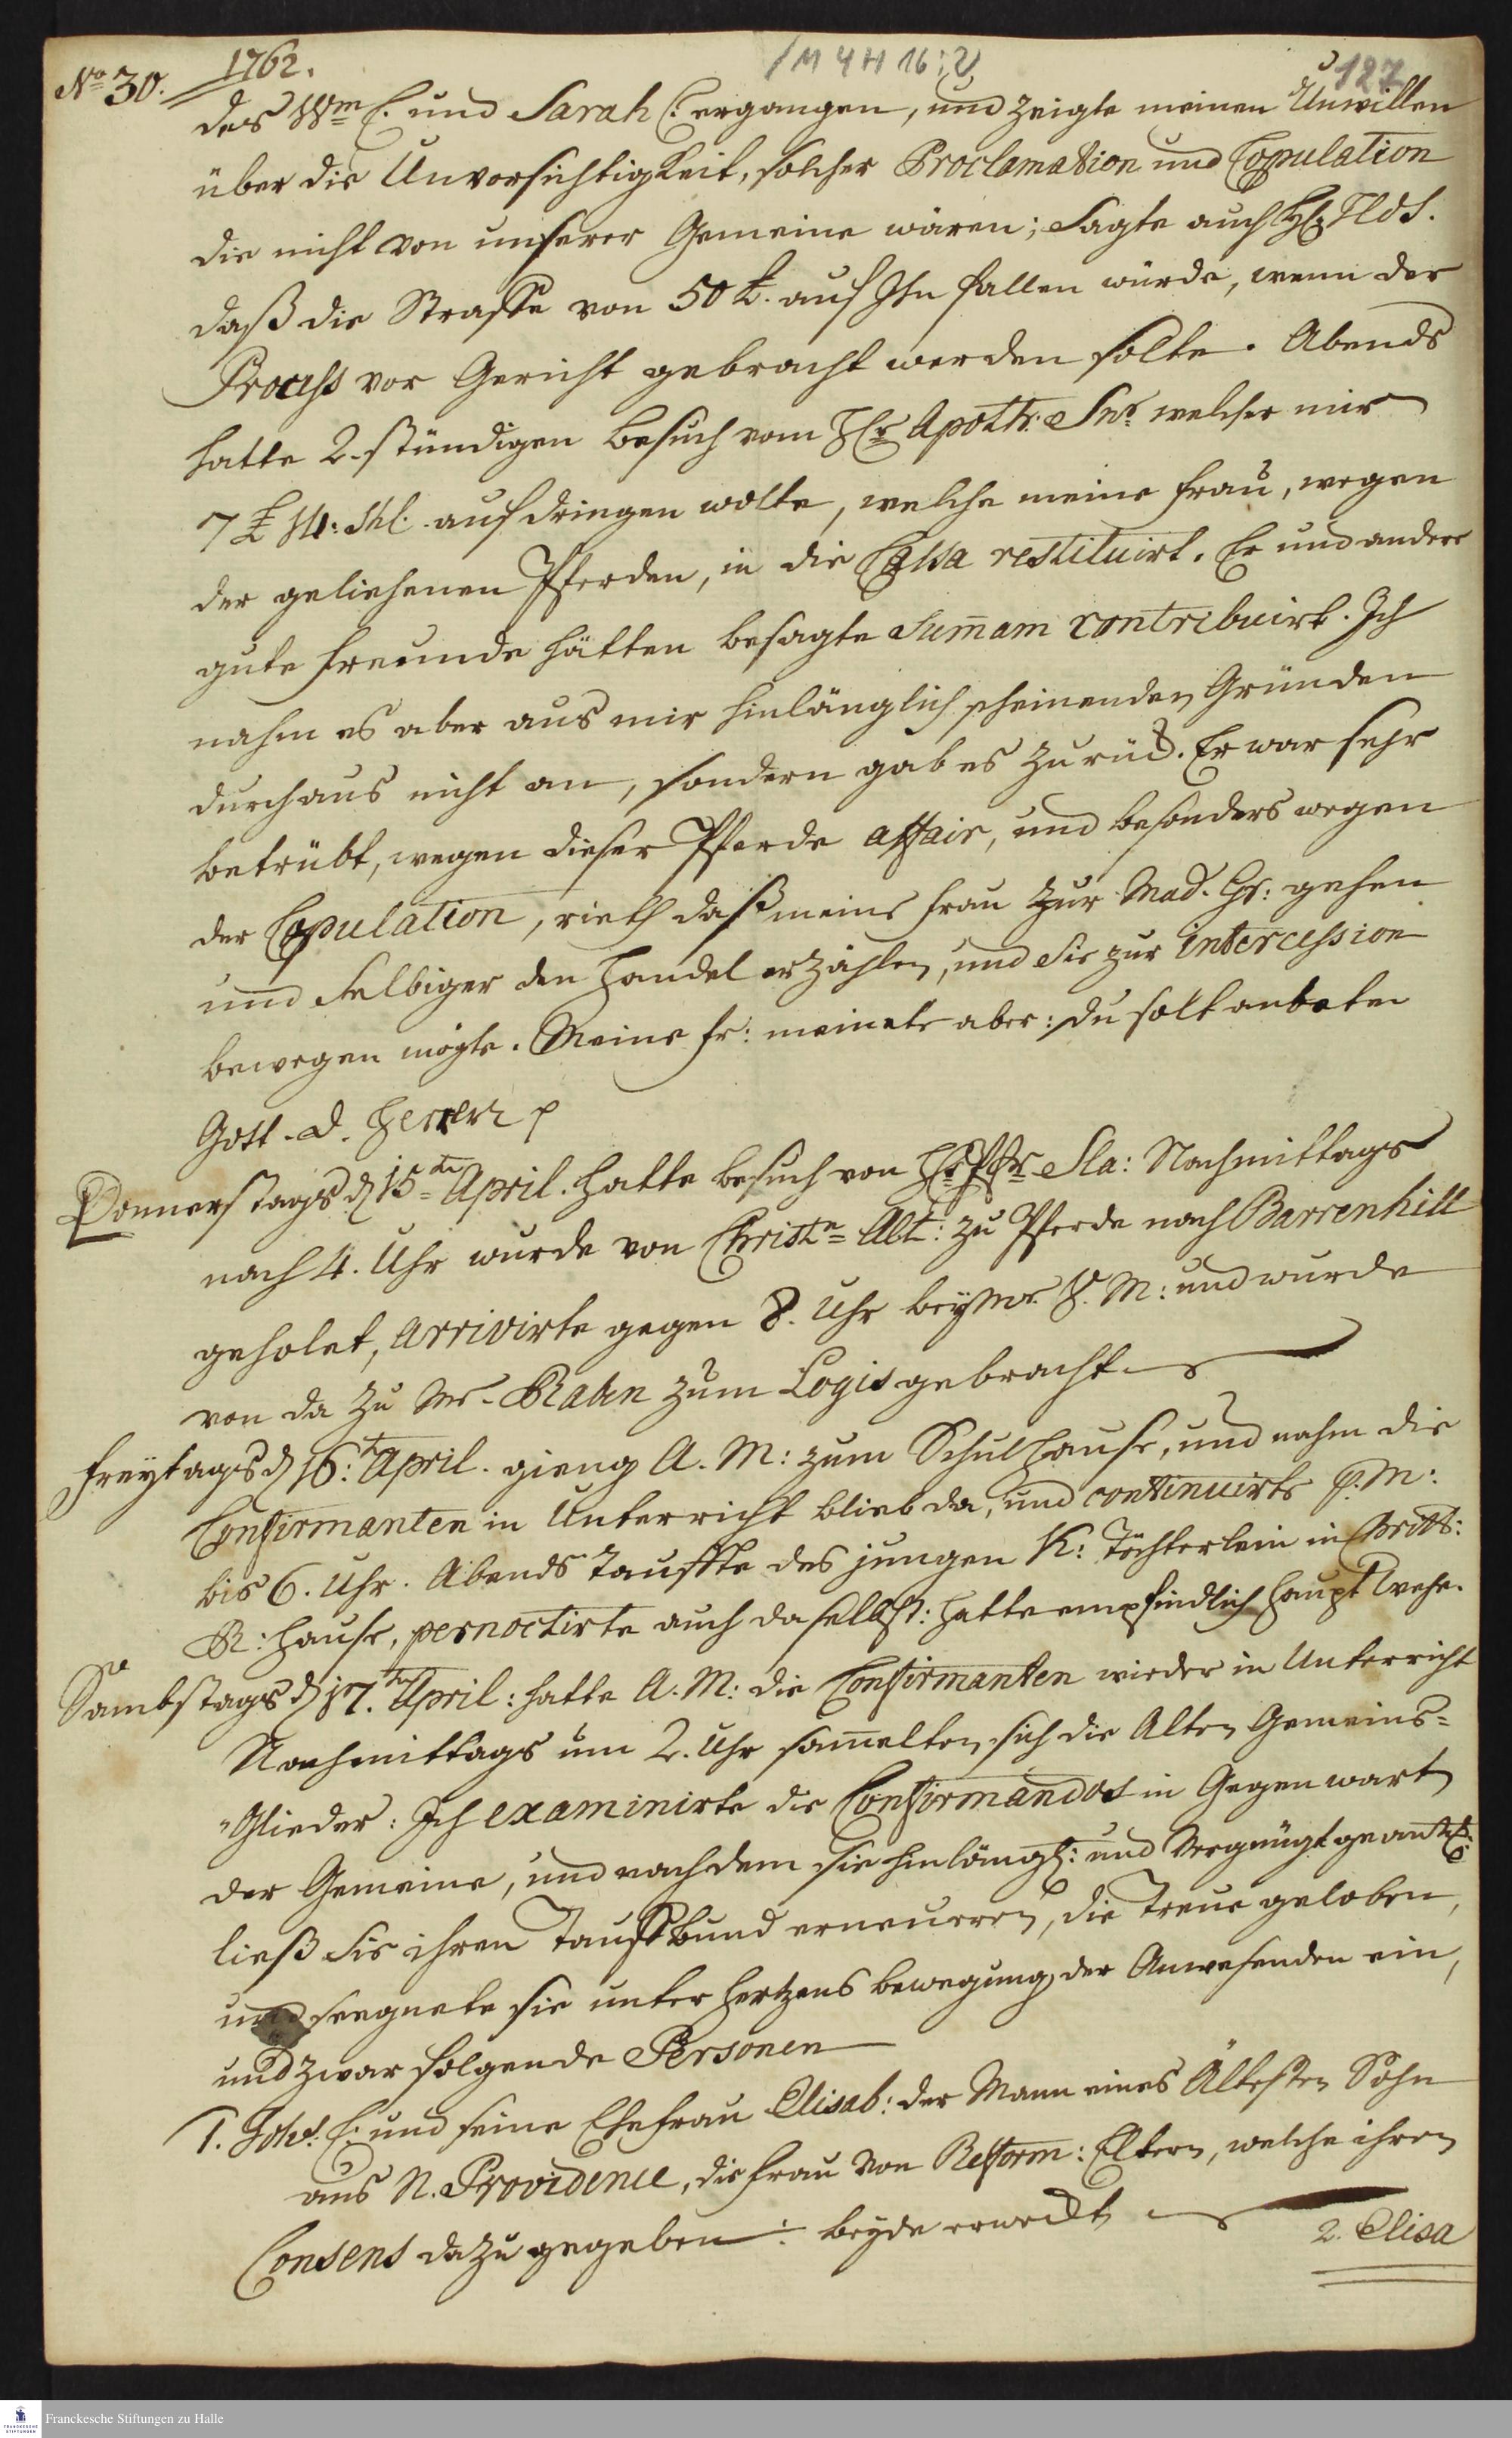 No 30. 1762. /M 4 H 16:2/ 127
des Wm C. und Sarah C. ergangen, und zeigte meinen Unwillen
über die Unvorsichtigkeit, solcher Proclamation und Copulation
die nicht von unserer Gemeine wären; sagte auch
daß die Straffe von 50 £. auf Ihn fallen würde, wenn der
Process vor Gericht gebracht werden solte. Abends
hatte 2.stündigen Besuch vom Hr Apoth: Snr. welcher mir
7 £ 14: Shl. aufdringen wolte, welche meine Frau, wegen
der geliehenen Pferden, in die Cassa restituirt. Er und andere
gute Freunde hätten besagte Summam contribuirt. Ich
nahm es aber aus mir hinlänglich scheinenden Gründen
durchaus nicht an, sondern gab es zurück. Er war sehr
betrübt, wegen dieser Pferde affair, und besonders wegen
der Copulation, rieth daß meine Frau zur Mad. Gr: gehen
und selbiger den Handel erzählen, und sie zur intercession
bewegen mögte. Meine Fr: meinete aber: du solt anbeten
Gott d. Herren p
Donnerstags d 15ten April. hatte Besuch von Hr Pfr Sla: Nachmittags
nach 4. Uhr wurde von Christn Alt: zu Pferde nach Barrenhill
geholet, arrivirte gegen 8. Uhr bey Mr. V. M: und wurde
von da zu Mr. Rahn zum Logis gebracht
Freytags d 16:t April. gieng A. M: zum Schulhause, und nahm die
Confirmanten in Unterricht blieb da, und continuirte p: M:
bis 6. Uhr. Abends tauffte des jungen K: Töchterlein in
R: Hause, pernoctirte auch daselbst: hatte empfindlich Haupt Wehe.
Sambstags d 17.ten April: hatte A. M: die Confirmanten wieder in Unterricht
Nachmittags um 2. Uhr sammelten sich die Alten Gemeins=
"Glieder: Ich examinirte die Confirmandos in Gegenwart
der Gemeine, und nachdem sie hinlängl: und Vergnügt geantw:
ließ sie ihren Tauffbund erneuren, die Treue geloben,
und seegnete sie unter Hertzens bewegung der Anwesenden ein,
und zwar folgende Personen
1. Joh: C: und seine Ehefrau Elisab: der Mann eines Ältesten Sohn
aus N. Providence, die Frau von Reform: Eltern, welche ihren
Consens dazu gegeben: beyde erweckt
2. Elisa
Franckesche Stiftungen zu Halle